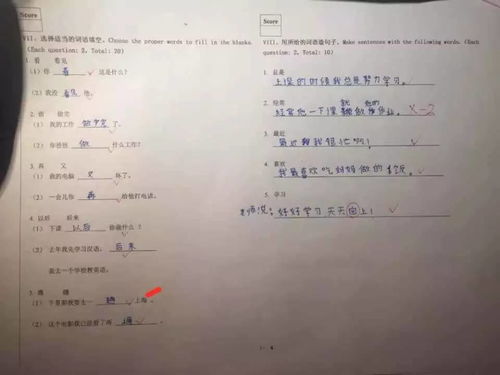 Score
VII. 选择适当的词语填空。Choose the proper words to fill in the blanks.
(Each question: 2, Total: 20)
1. 看 看见
(1) 你 看 这是什么?
(2) 我没 看见 他。
2. 做 做完
(1) 我的工作 做完 了。
(2) 你爸爸 做 什么工作?
3. 再 又
(1) 我的电脑 又 坏了。
(2) 一会儿你 再 给他打电话。
4. 以后 后来
(1) 下课 以后 你做什么?
(2) 去年我先学习汉语, 后来
我去一个学校教英语。
5. 遍 趟
(1) 下星期我要去一 趟 上海。
(2) 这个电影我已经看了两 遍 。
Score
VIII. 用所给的词语造句子。Make sentences with the following words.
(Each question: 2, Total: 10)
1. 总是
上课的时候我总是努力学习。
2. 经常
就 他的
经常他一下课 做作业。 X-2
3. 最近
最近 我很忙啊!
4. 喜欢
我最喜欢吃妈妈做的 饭。
5. 学习
老师说: 好好学习天天向上!
4